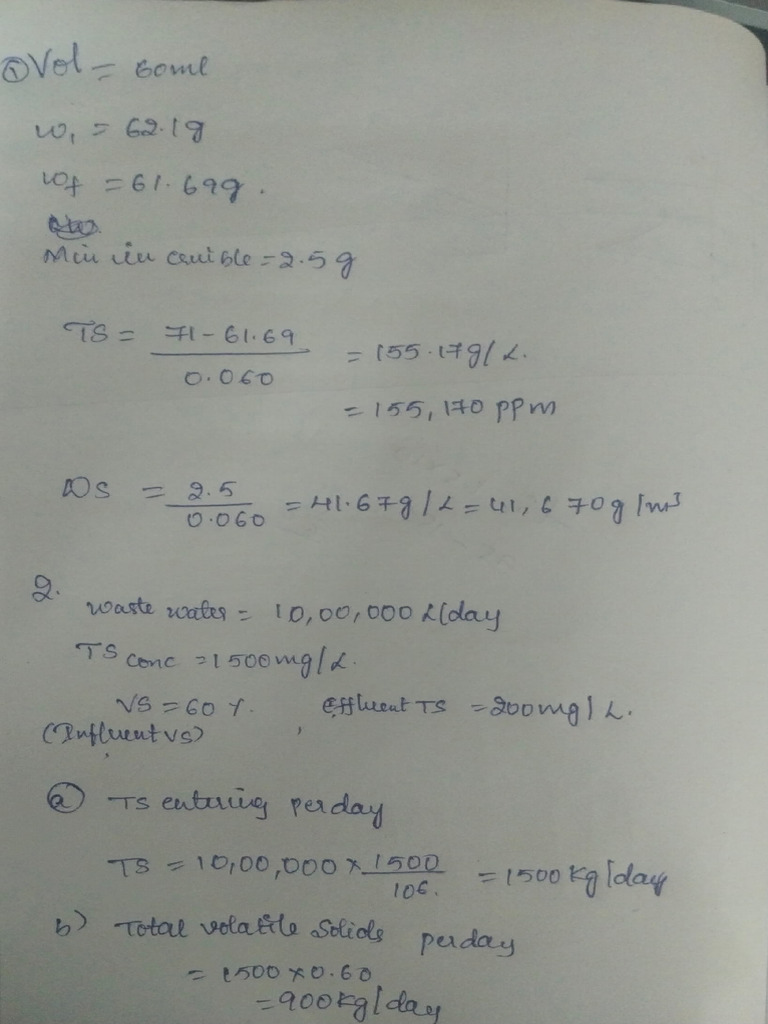 ① Vol = 60ml
w₁ = 62.1g
wf = 61.69g.
Min in cruible = 2.5g
TS = 71-61.69 / 0.060 = 155.17g/L.
= 155,170 ppm
DS = 2.5 / 0.060 = 41.67g/L = 41,670g/m³
2.
waste water = 10,00,000 L/day
TS conc = 1500mg/L.
VS = 60 %. , Effluent TS = 200mg/L.
(Influent VS)
ⓐ TS entering perday
TS = 10,00,000 × 1500 / 106. = 1500 Kg/day
b) Total volatile Solids perday
= 1500 × 0.60
= 900Kg/day